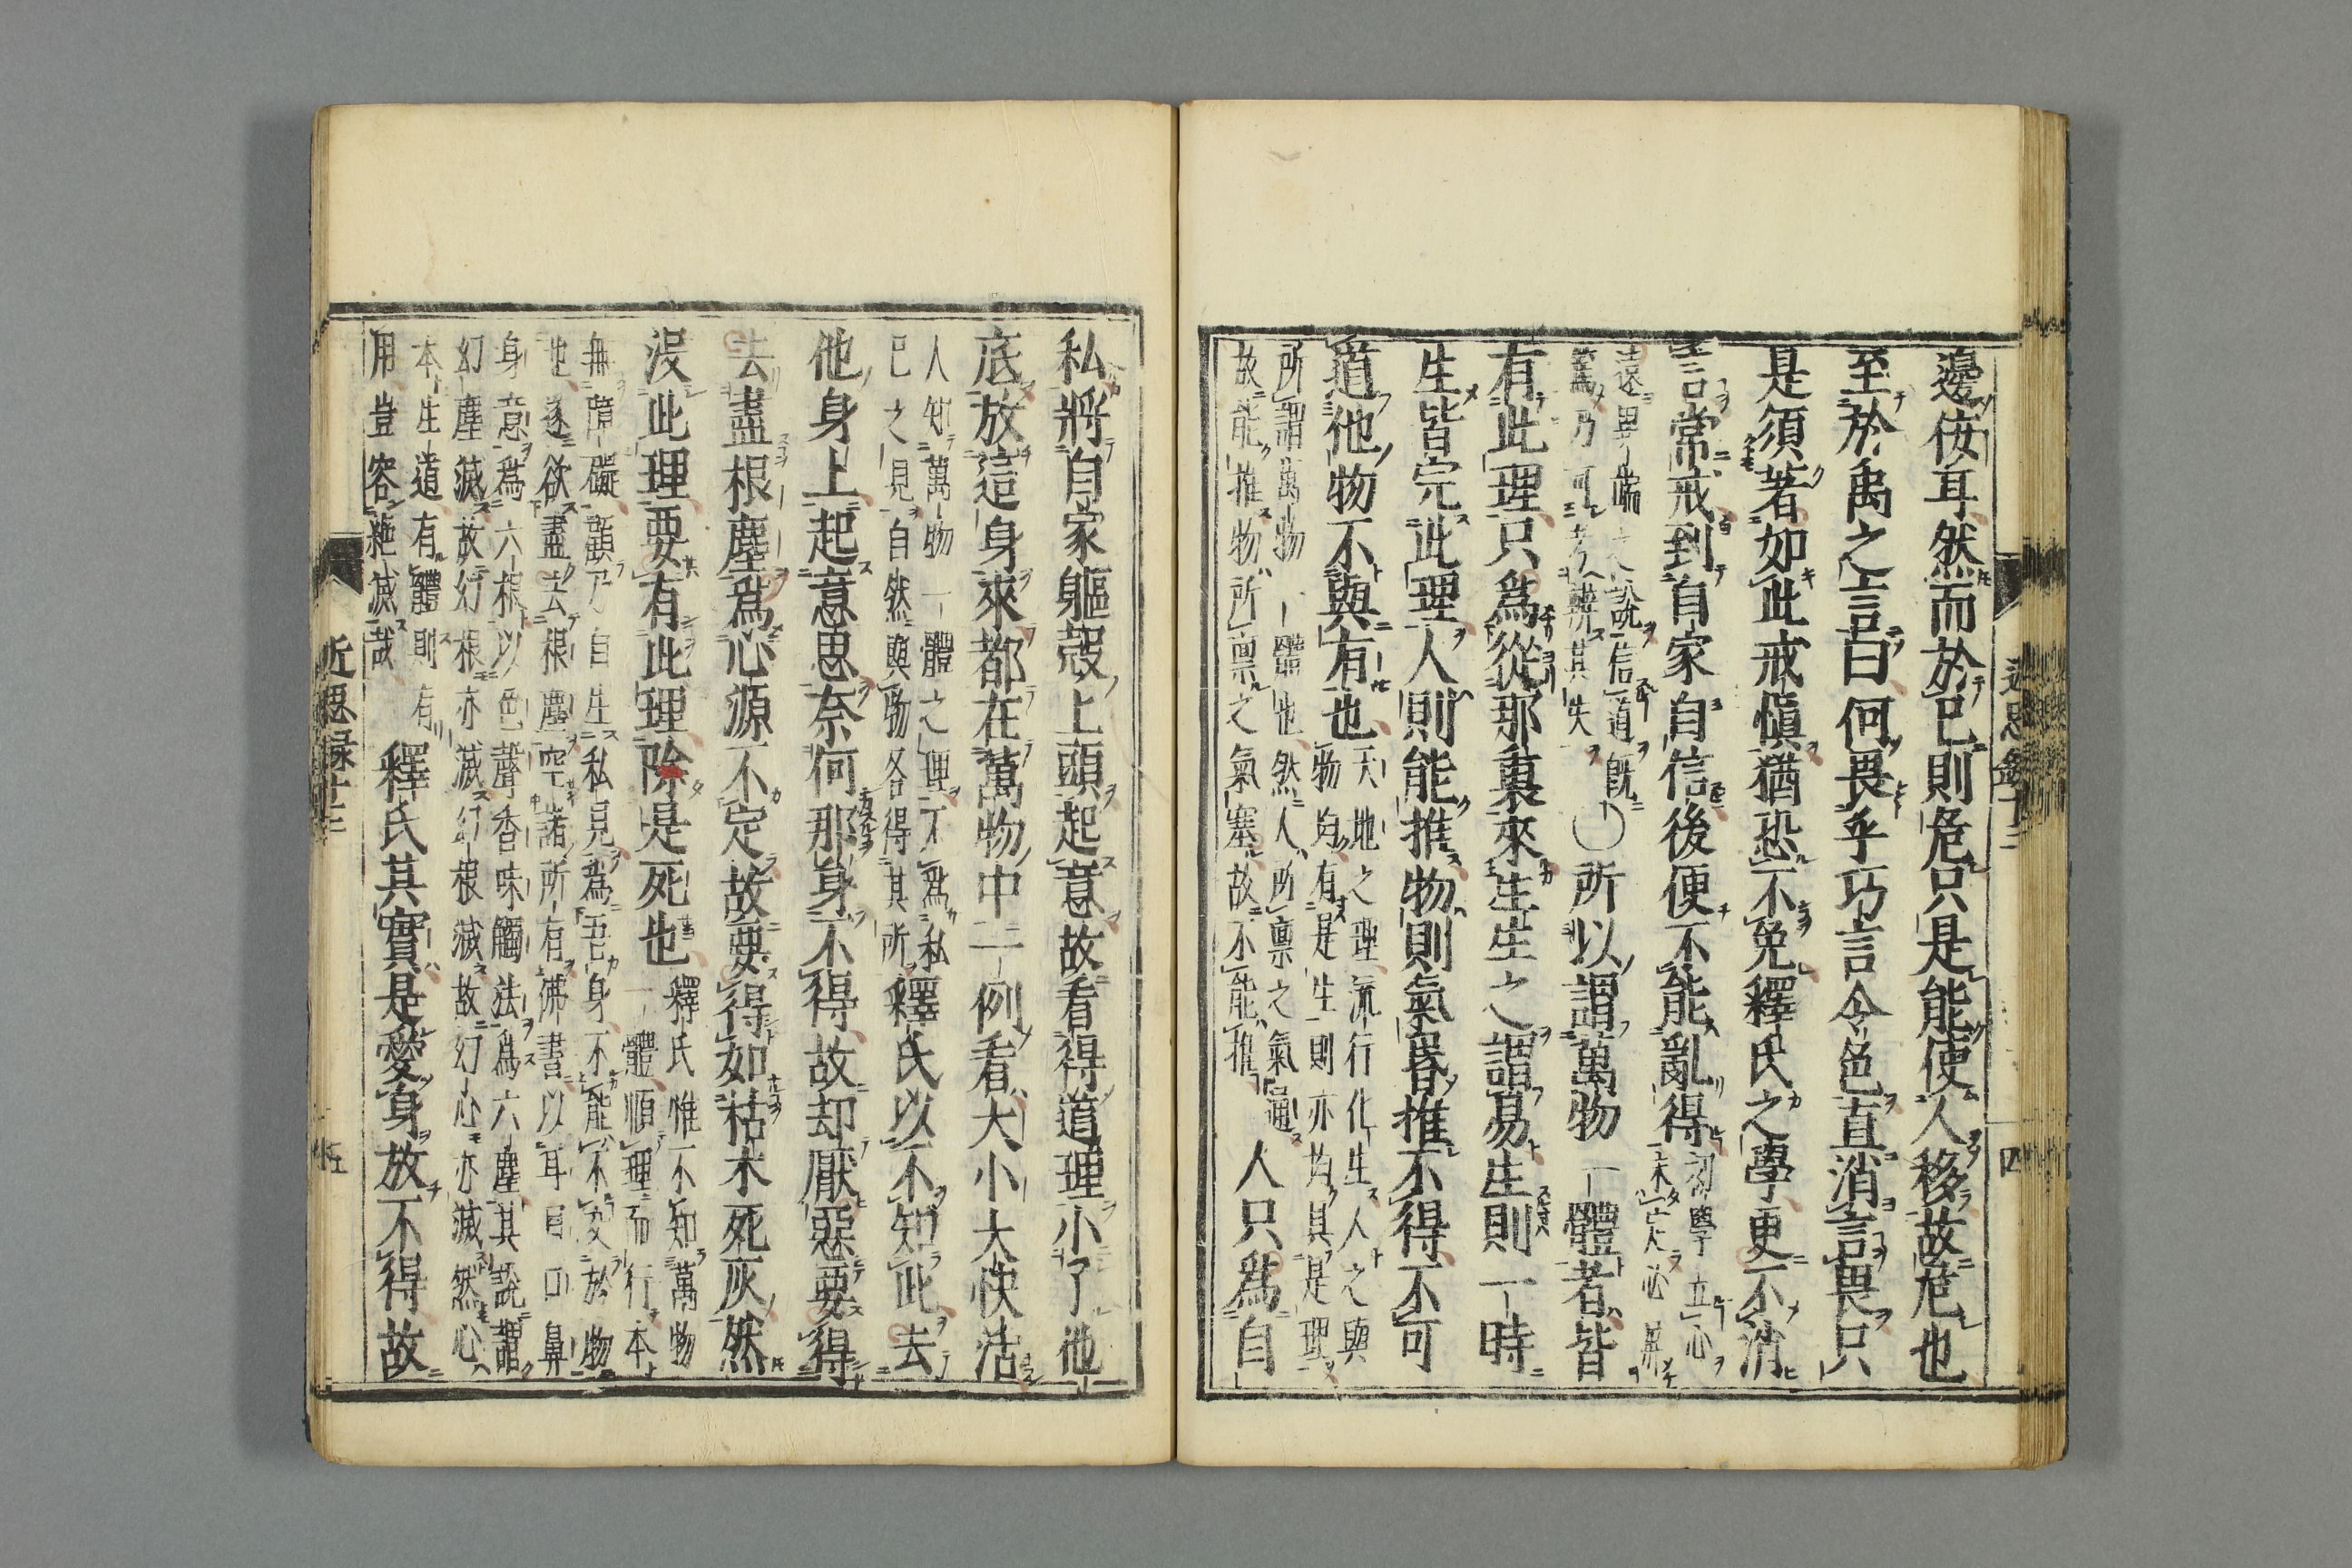 近思錄十三
四
邊佞耳然而於己則危只是能使人移故危也
至於禹之言曰何畏乎巧言令色直消言畏只
是須著如此戒慎猶恐不免釋氏之學更不消
言常戒到自家自信後便不能亂得
初學立心
未定必屏
遠異端之說信道既
篤乃可考辨其失
○所以謂萬物一體者皆
有此理只爲從那裏來生生之謂易生則一時
生皆完此理人則能推物則氣昏推不得不可
道他物不與有也
天地之理流行化生人之與
物均有是生則亦均具是理
所謂萬物一體也然人所稟之氣通
故能推物所稟之氣塞故不能推
人只爲自
私將自家軀殼上頭起意故看得道理小了他
底放這身來都在萬物中一例看大小大快活
人知萬物一體之理不爲私
己之見自然與物各得其所
釋氏以不知此去
他身上起意思奈何那身不得故却厭惡要得
去盡根塵爲心源不定故要得如枯木死灰然
沒此理要有此理除是死也
釋氏惟不知萬物
一體順理而行本
無障礙顧乃自生私見爲吾身不能不交於物
也遂欲盡去根塵空諸所有佛書以耳目口鼻
身意爲六根以色聲香味觸法爲六塵其說謂
幻塵滅故幻根亦滅幻根滅故幻心亦滅然心
本生道有體則有
用豈容絕滅哉
釋氏其實是愛身放不得故
近思錄十三